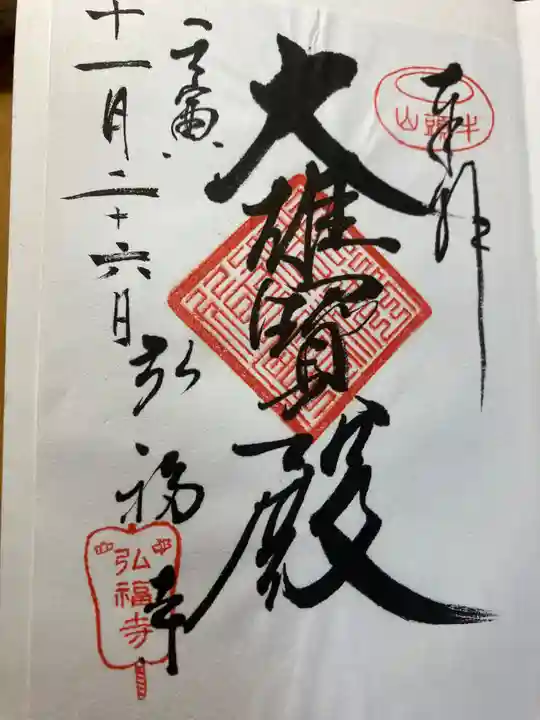 奉拝
牛頭山
大雄寶殿
十一月二十六日
弘福寺
弘福寺